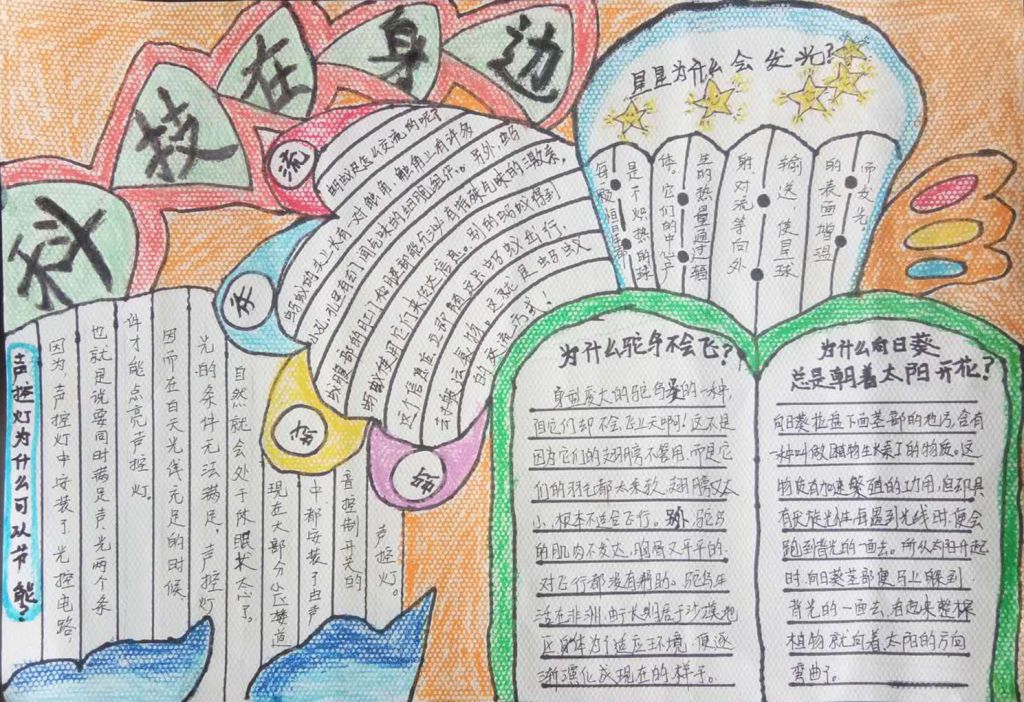 科技在身边
声控灯为什么可以节能?
因为,声控灯中安装了光控电路,
也就是说要同时满足声、光两个条
件才能点亮声控灯。
因而在白天光线充足的时候
光的条件无法满足,声控灯
自然就会处于休眠状态了。
现在大部分小区楼道
中都安装了由声
音控制开关的
声控灯。
蚂蚁交流
蚂蚁是怎么交流的呢?
蚂蚁的头上长有一对触角,触角上有许多
小孔,孔里有专门闻气味的细胞组织。另外,蚂
蚁腹部的肛门和腺部能分泌有特殊气味的激素,
蚂蚁使用它们来传达信息。别的蚂蚁得到
这个信息后,立即随这只蚂蚁出行,
寻觅这食物。这就是蚂蚁
的交流方式!
星星为什么会发光?
每一颗恒星都
是个炽热的球
体。它们的中心产
生的热量通过辐
射、对流等向外
输送,使星球
的表面增温
而发光。
为什么驼鸟不会飞?
身型庞大的驼鸟是鸟的一种
但它们却不会飞上天啊!这不是
因为它们的翅膀不管用,而是它
们的羽毛都太柔软,翅膀又太
小,根本不适合飞行。另外,驼鸟
的肌肉不发达,胸骨又平平的,
对飞行都没有帮助。驼鸟生
活在非洲,由于长期居于沙漠地
区,身体为了适应环境,便逐
渐演化成现在的样子。
为什么向日葵
总是朝着太阳开花?
向日葵花盘下面茎部的地方,会有
一种叫做植物生长素的物质。这
物质有加速繁殖的功用,但却具
有厌旋光性,每遇到光线时,便会
跑到背光的一面去。所以太阳升起
时,向日葵茎部便马上躲到
背光的一面去,看起来整棵
植物就向着太阳的方向
弯曲了。